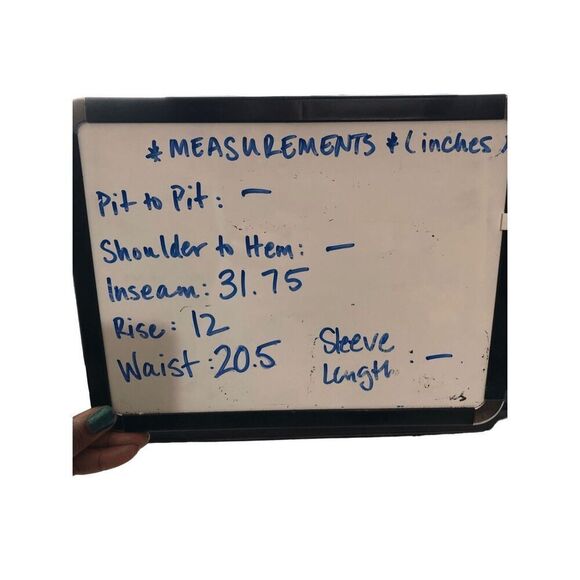 * MEASUREMENTS * (inches)
Pit to Pit: —
Shoulder to Hem: —
Inseam: 31.75
Rise: 12
Waist: 20.5
Sleeve
Length: —